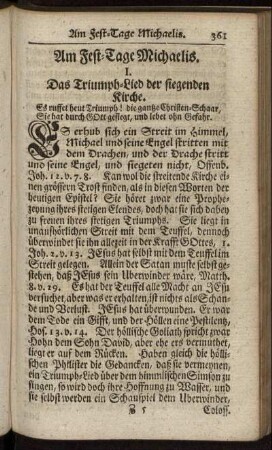 Am Fest-Tage Michaelis. 361
Am Fest-Tage Michaelis.
I.
Das Triumph-Lied der siegenden
Kirche.
Es ruffet heut Triumph! die gantze Christen-Schaar,
Sie hat durch GOtt gesiegt, und lebet ohn Gefahr.
ES erhub sich ein Streit im Himmel,
Michael und seine Engel stritten mit
dem Drachen, und der Drache stritt
und seine Engel, und siegeten nicht, Offenb.
Joh. 12. v. 7. 8. Kan wol die streitende Kirche ei-
nen grössern Trost finden, als in diesen Worten der
heutigen Epistel? Sie höret zwar eine Prophe-
zeyung ihres stetigen Elendes, doch hat sie sich dabey
zu freuen ihres stetigen Triumphs. Sie liegt in
unaufhörlichen Streit mit dem Teuffel, dennoch
überwindet sie ihn allezeit in der Krafft GOttes, 1.
Joh. 2. v. 13. JEsus hat selbst mit dem Teuffel im
Streit gelegen. Allein der Satan muste selbst ge-
stehen, daß JEsus sein Uberwinder wäre, Matth.
8. v. 29. Es hat der Teuffel alle Macht an JEsu
versuchet, aber was er erhalten, ist nichts als Schan-
de und Verlust. JEsus hat überwunden. Er war
dem Tode ein Gifft, und der Höllen eine Pestilentz,
Hos. 13. v. 14. Der höllische Goliath spricht zwar
Hohn dem Sohn David, aber ehe ers vermuthet,
liegt er auf dem Rücken. Haben gleich die hölli-
schen Philister die Gedancken, daß sie vermeynen,
ein Triumph-Lied über dem himmlischen Simson zu
singen, so wird doch ihre Hoffnung zu Wasser, und
sie selbst werden ein Schauspiel dem Uberwinder,
Z 5 Coloss.